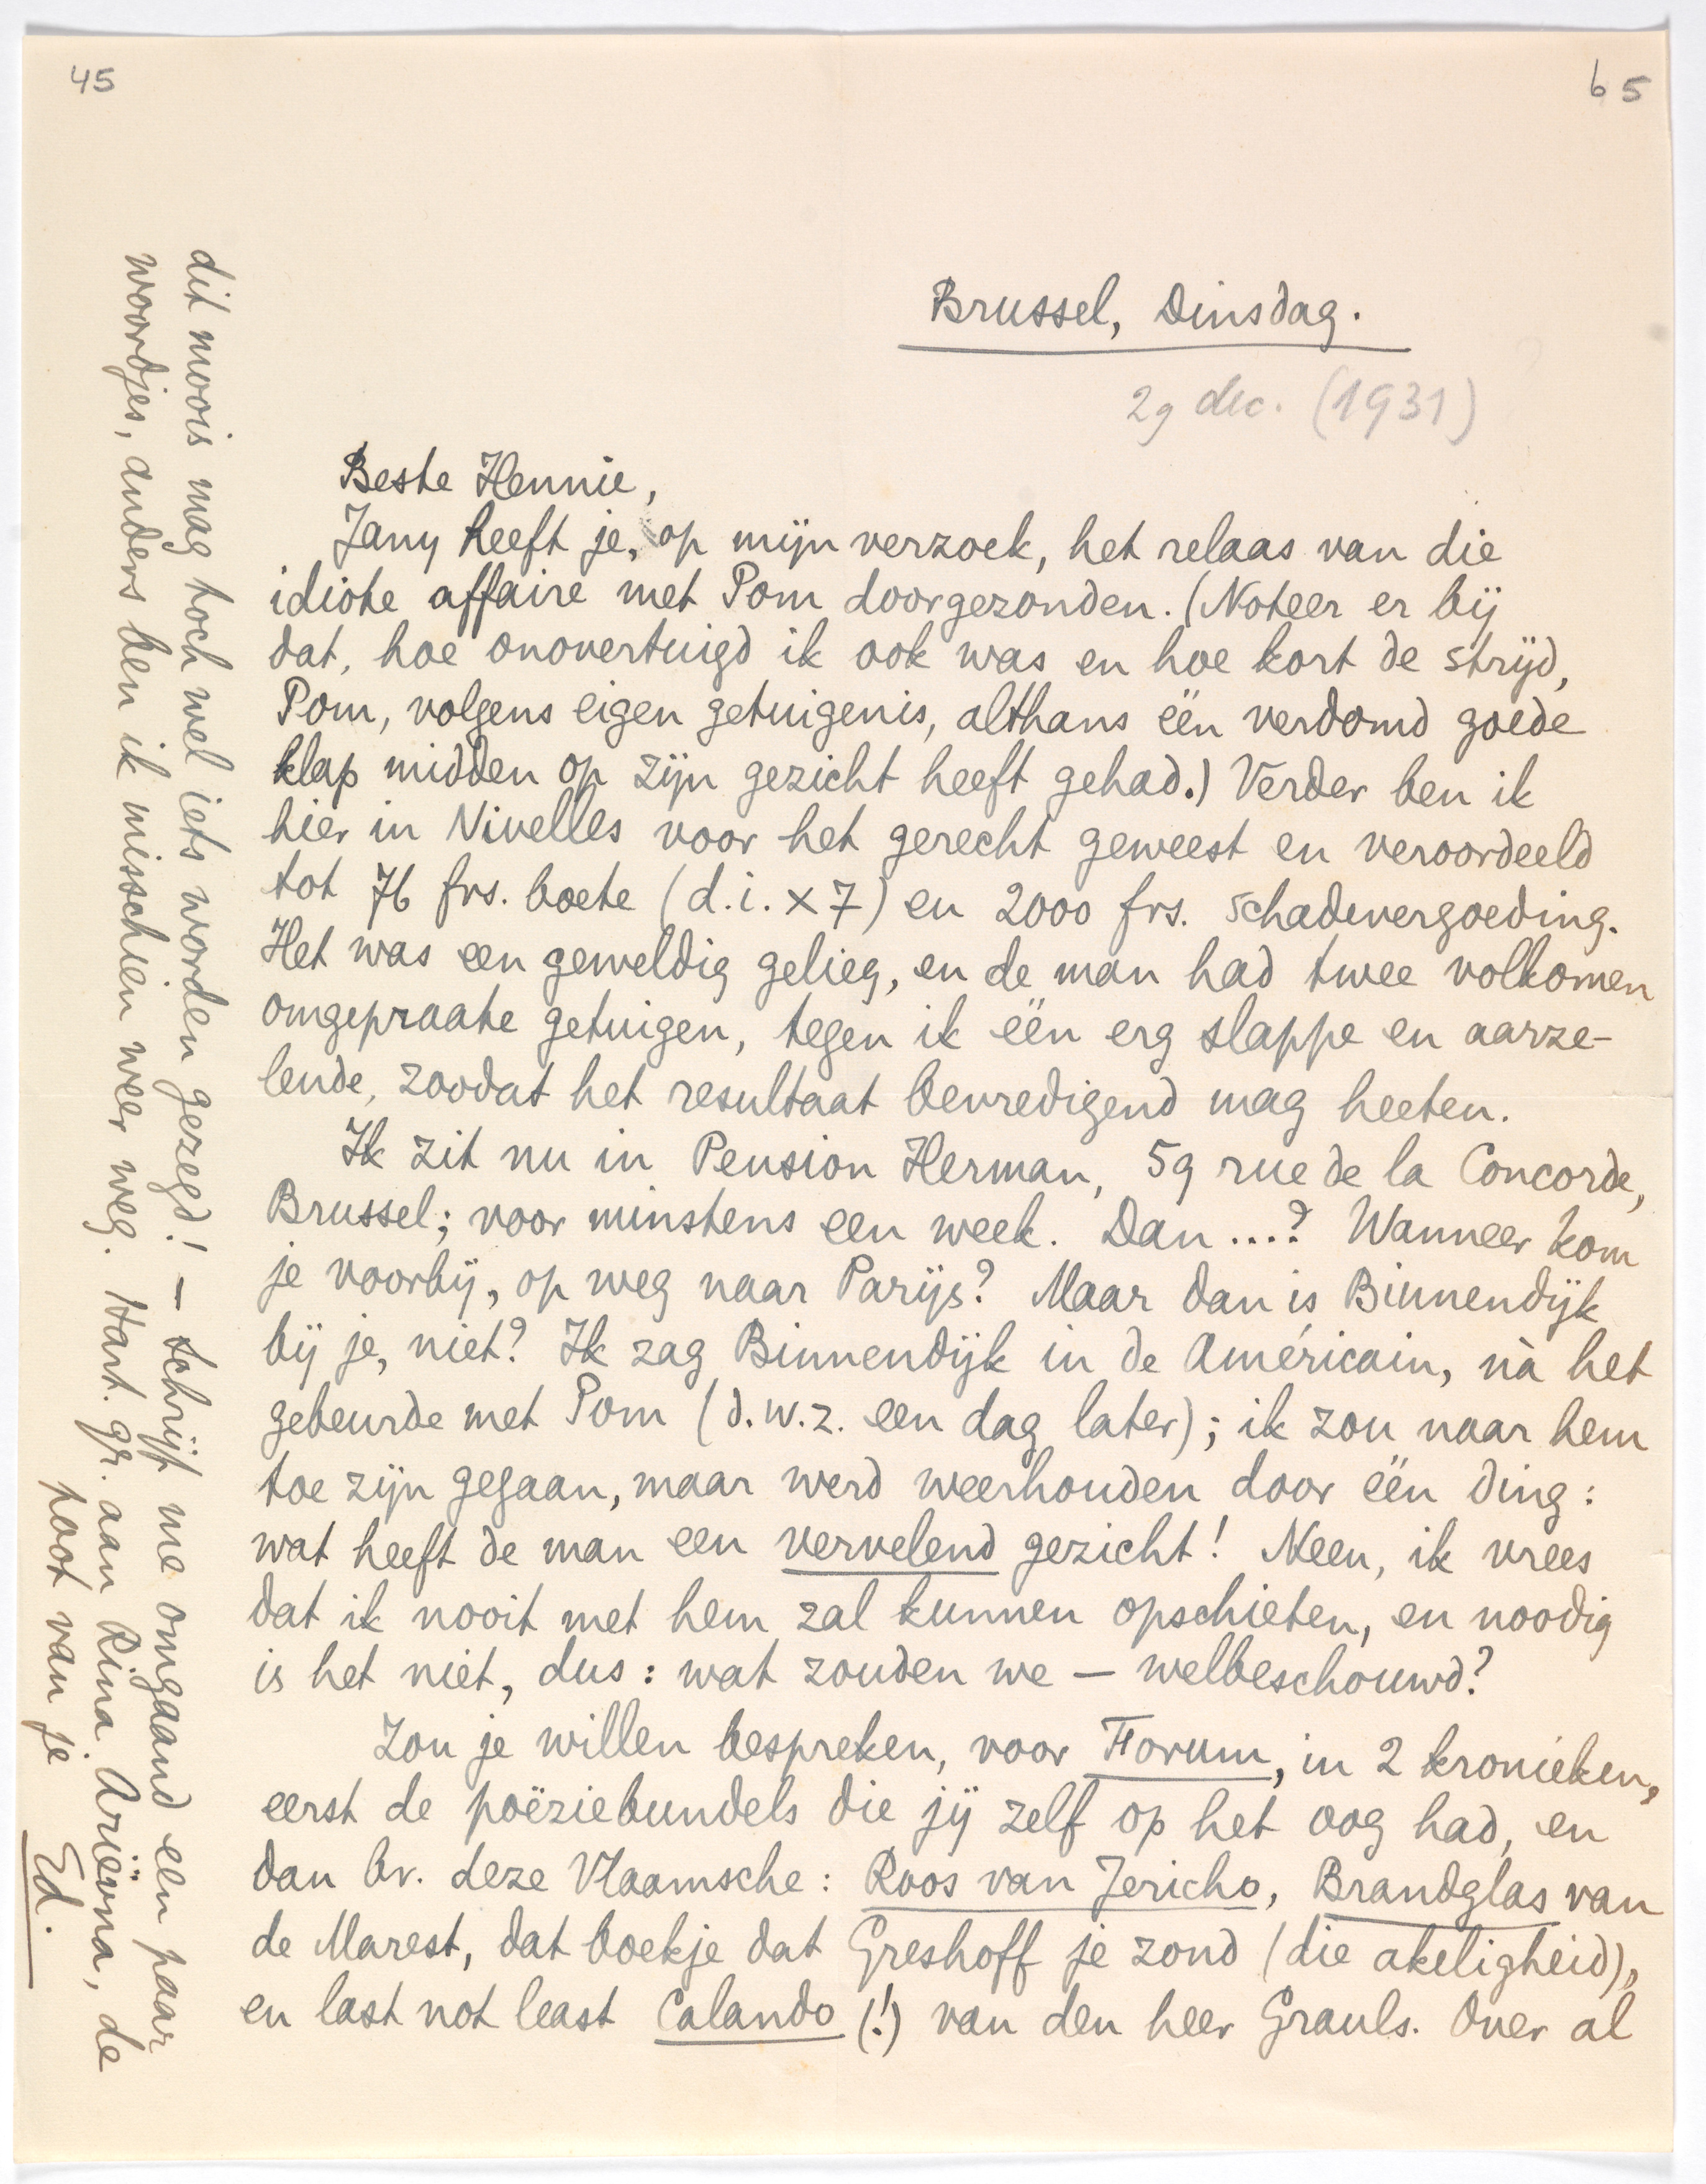 45
65
Brussel, Dinsdag.
29 dec. (1931)
Beste Hennie,
Jany heeft je, op mijn verzoek, het relaas van die
idiote affaire met Pom doorgezonden. (Noteer er bij
dat, hoe onovertuigd ik ook was en hoe kort de strijd,
Pom, volgens eigen getuigenis, althans één verdomd goede
klap midden op zijn gezicht heeft gehad.) Verder ben ik
hier in Nivelles voor het gerecht geweest en veroordeeld
tot 76 frs. boete (d.i. x 7) en 2000 frs. schadevergoeding.
Het was een geweldig gelieg, en de man had twee volkomen
omgepraate getuigen, tegen ik één erg slappe en aarze-
lende, zoodat het resultaat bevredigend mag heeten.
Ik zit nu in Pension Herman, 59 rue de la Concorde,
Brussel; voor minstens een week. Dan ....? Wanneer kom
je voorbij, op weg naar Parijs? Maar dan is Binnendijk
bij je, niet? Ik zag Binnendijk in de Américain, nà het
gebeurde met Pom (d.w.z. een dag later); ik zou naar hem
toe zijn gegaan, maar werd weerhouden door één ding:
wat heeft de man een vervelend gezicht! Neen, ik vrees
dat ik nooit met hem zal kunnen opschieten, en noodig
is het niet, dus: wat zouden we — welbeschouwd?
Zou je willen bespreken, voor Forum, in 2 kronieken,
eerst de poëziebundels die jij zelf op het oog had, en
dan bv. deze Vlaamsche: Roos van Jericho, Brandglas van
de Marest, dat boekje dat Greshoff je zond (die akeligheid),
en last not least Calando (!) van den heer Grauls. Over al
dit moois mag toch wel iets worden gezegd! — Schrijf me omgaand een paar
woordjes, anders ben ik misschien weer weg. Hart. gr. aan Rina Ariëna, de
poot van je
Ed.